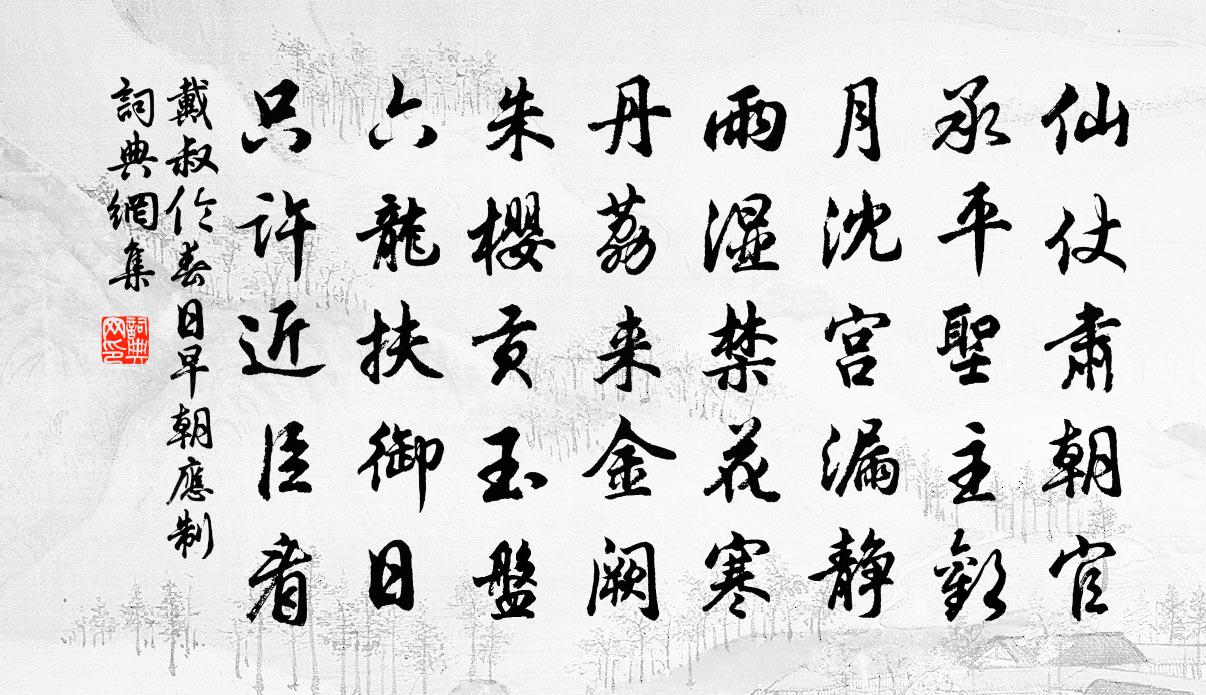 仙仗肃朝官
承平聖主歡
月沈宫漏静
雨湿禁花寒
丹荔来金阙
朱櫻贡玉盤
六龍扶御日
只许近臣看
戴叔伦春日早朝應制
詞典網集
詞典网印